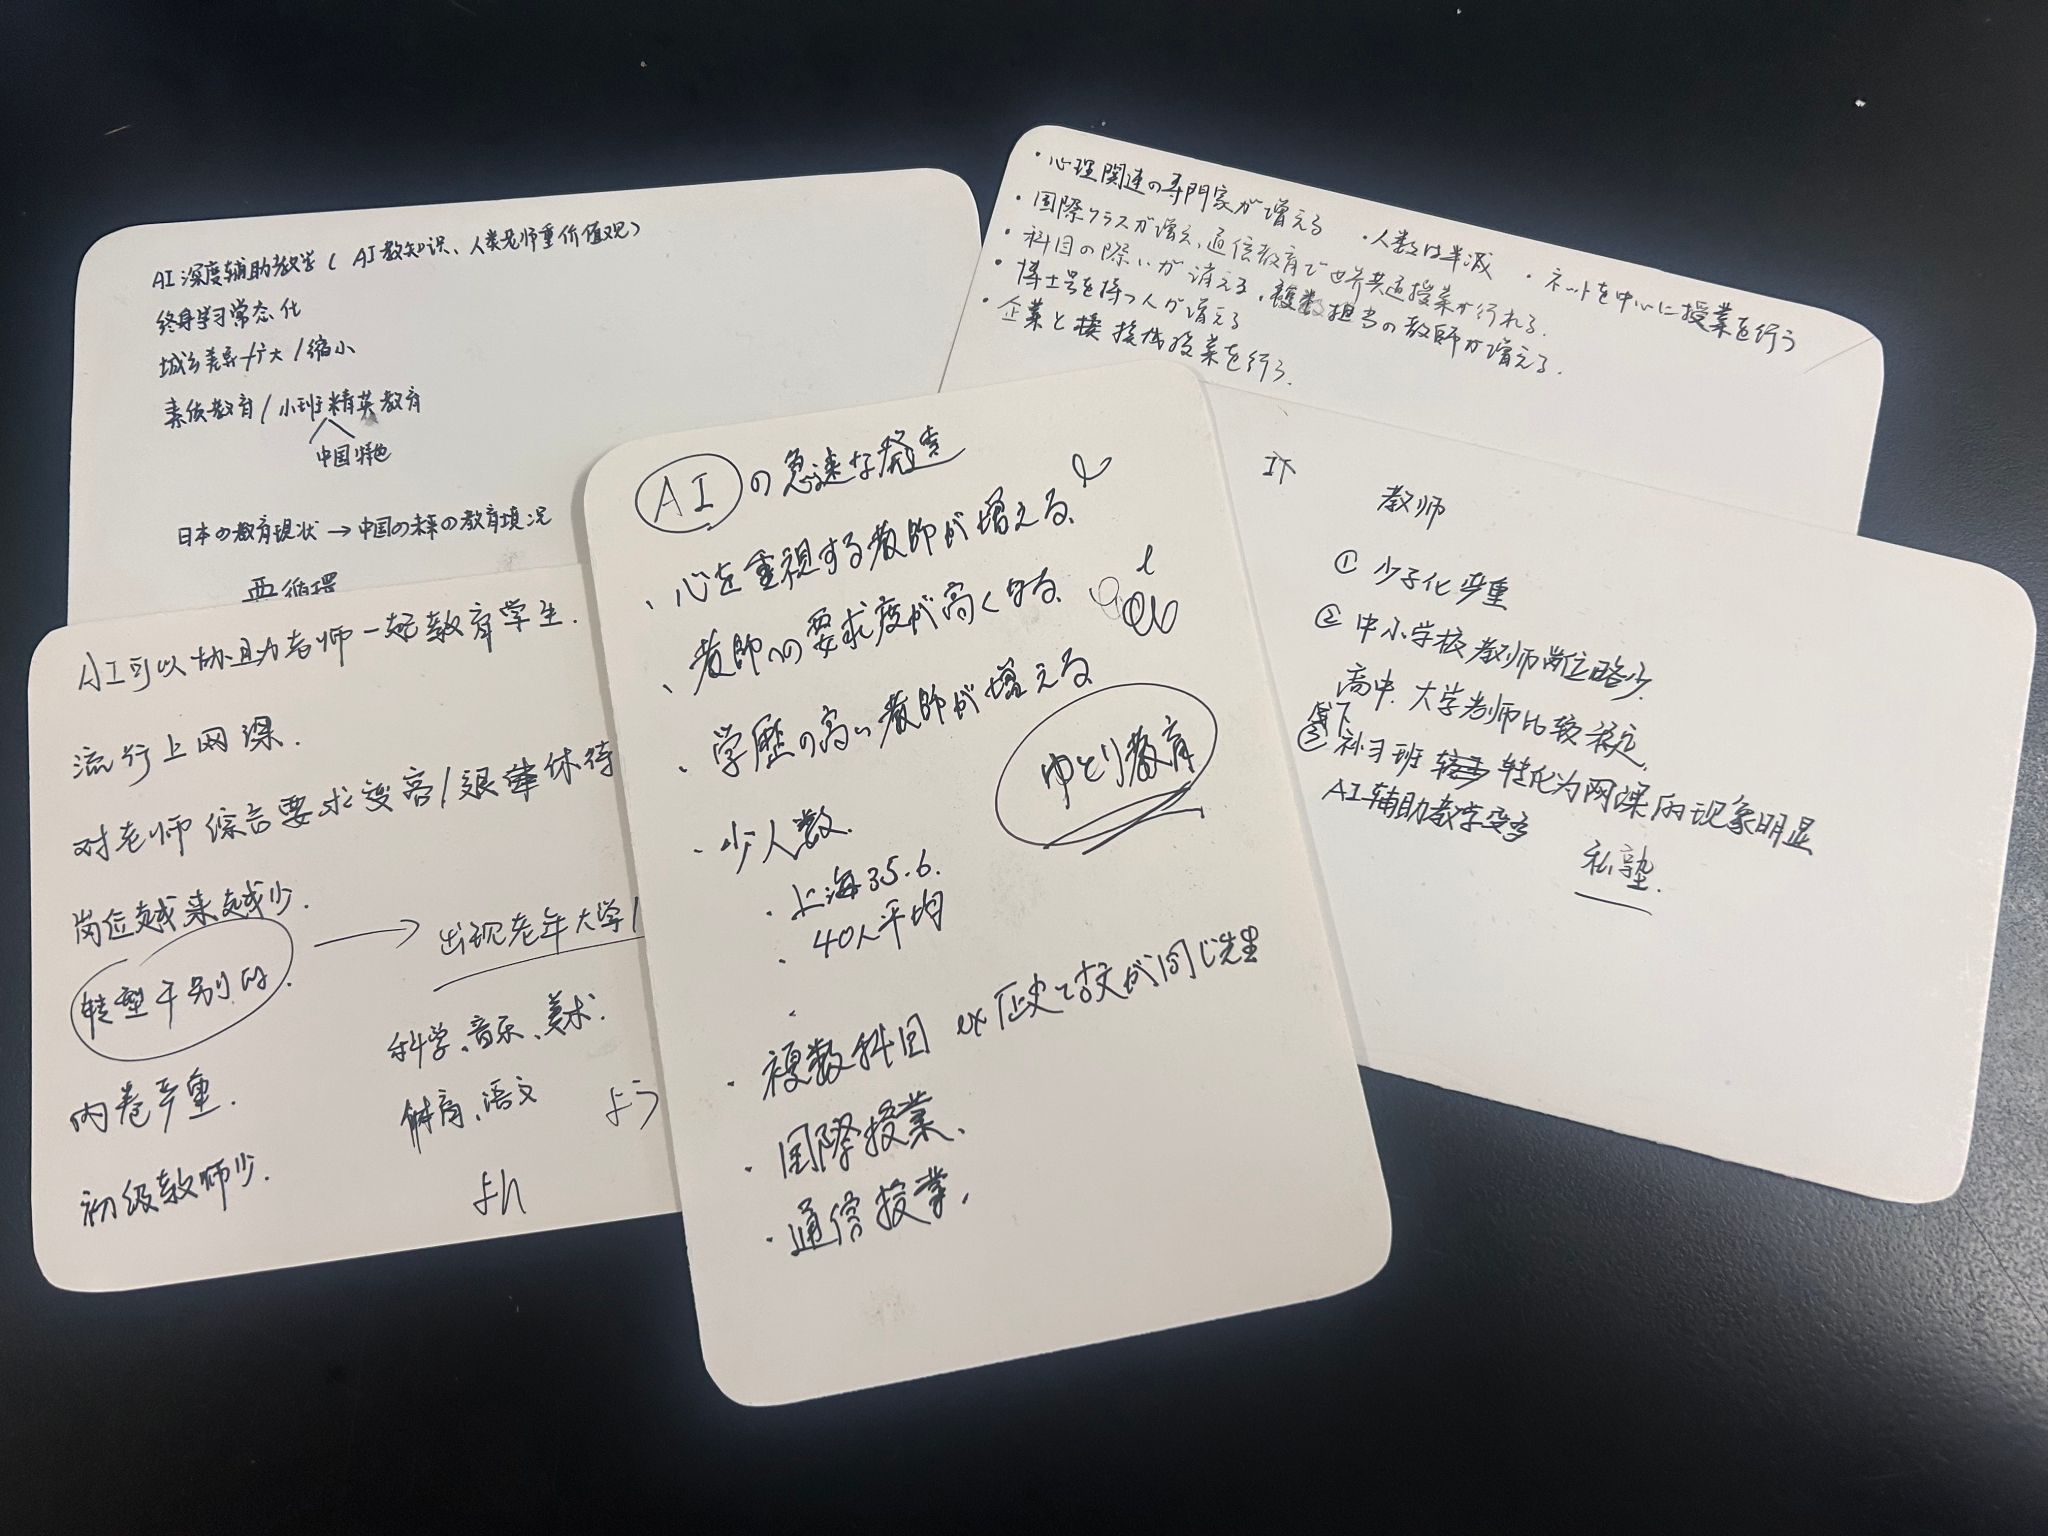 AI深度辅助教学(AI教知识、人类老师重价值观)
终身学习常态化
城乡差异扩大/缩小
素质教育/小班精英教育
中国特色
日本の教育現状→中国の未来の教育境况
要循環
・心理関連の専門家が増える ・人数は半減 ・ネットを中心に授業を行う
・国際クラスが増え、通信教育で世界共通授業が行れる.
・科目の際いが消える、複数担当の教師が増える.
・博士号を持つ人が増える
・企業と 授業を行う.
AI可以协助老师一起教育学生.
流行上网课.
对老师综合要求变高/退休待
岗位越来越少.
转型干别的. → 出现老年大学/
科学、音乐、美术.
体育、语文
内卷严重.
初级教师少.
よう
よh
AIの急速な発達
、心を重視する教師が増える、
、教師への要求度が高くなる、
、学歴の高い教師が増える
ゆとり教育
・少人数、
・上海35.6.
・40人平均
・複数科目 ex 歴史と古文が同じ先生
・国際授業、
・通信授業、
教师
① 少子化严重
② 中小学校教师岗位略少.
高中.大学老师比较稳定,
线下
③ 补习班 转化为网课的现象明显
AI辅助教学变多
私塾.